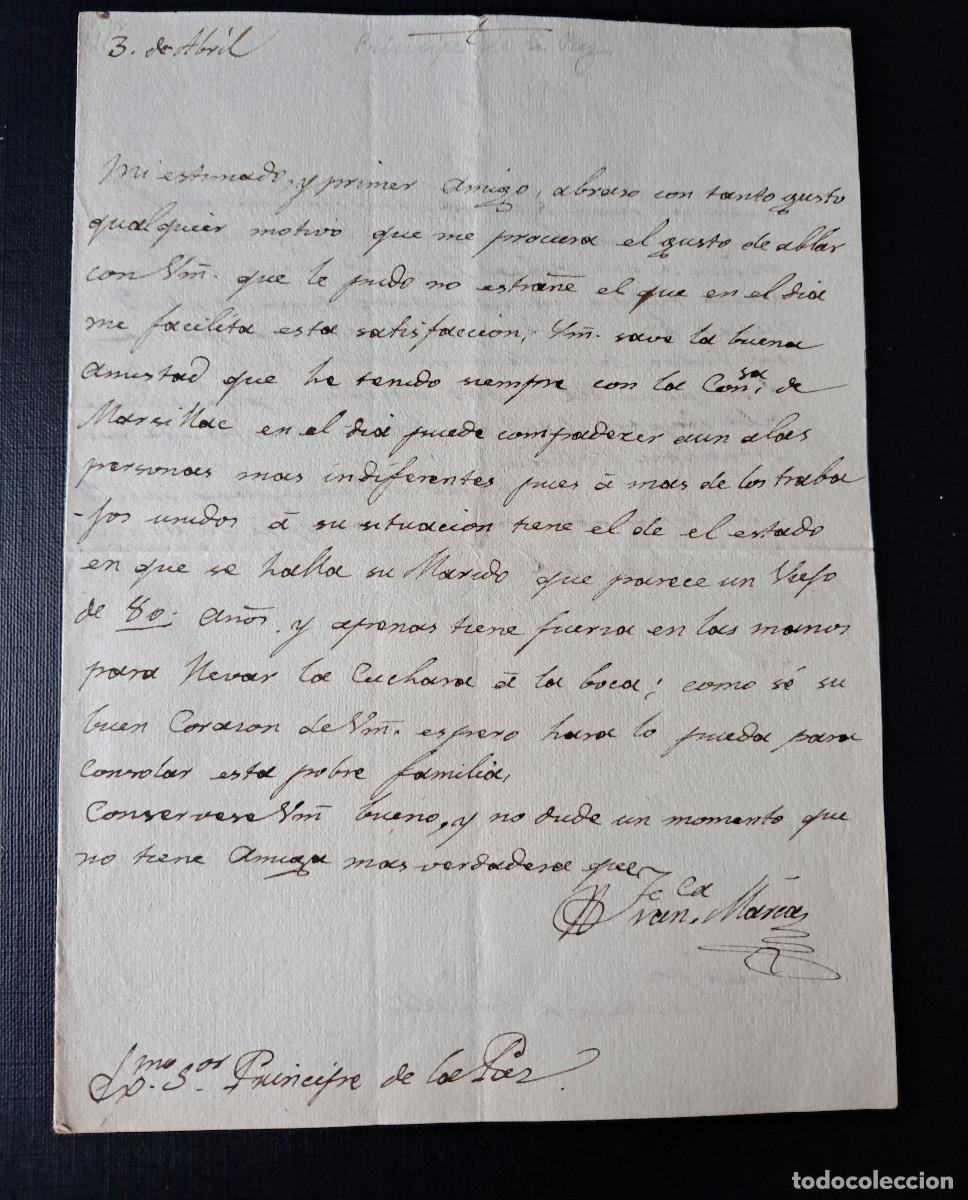 3. de Abril
Principe de la Paz
Mi estimado, y primer Amigo, abraso con tanto gusto
qualquier motivo que me procura el gusto de ablar
con Vm̃. que le pido no estrañe el que en el dia
me facilita esta satisfaccion, Vm̃. save la buena
Amistad que he tenido siempre con la Con.sa de
Marsillac en el dia puede compadezer aun alas
personas mas indiferentes pues â mas de los traba
-jos unidos â su situacion tiene el de el estado
en que se halla su Marido que parece un Viejo
de 80. años, y apenas tiene fuerza en las manos
para llevar la Cuchara â la boca; como sé su
buen Corazon de Vm̃. espero hara lo pueda para
Consolar esta pobre familia,
Conservese Vm̃ bueno, y no dude un momento que
no tiene Amiga mas verdadera que
Maria
mo. Sor Principe de la Paz.
todocoleccion